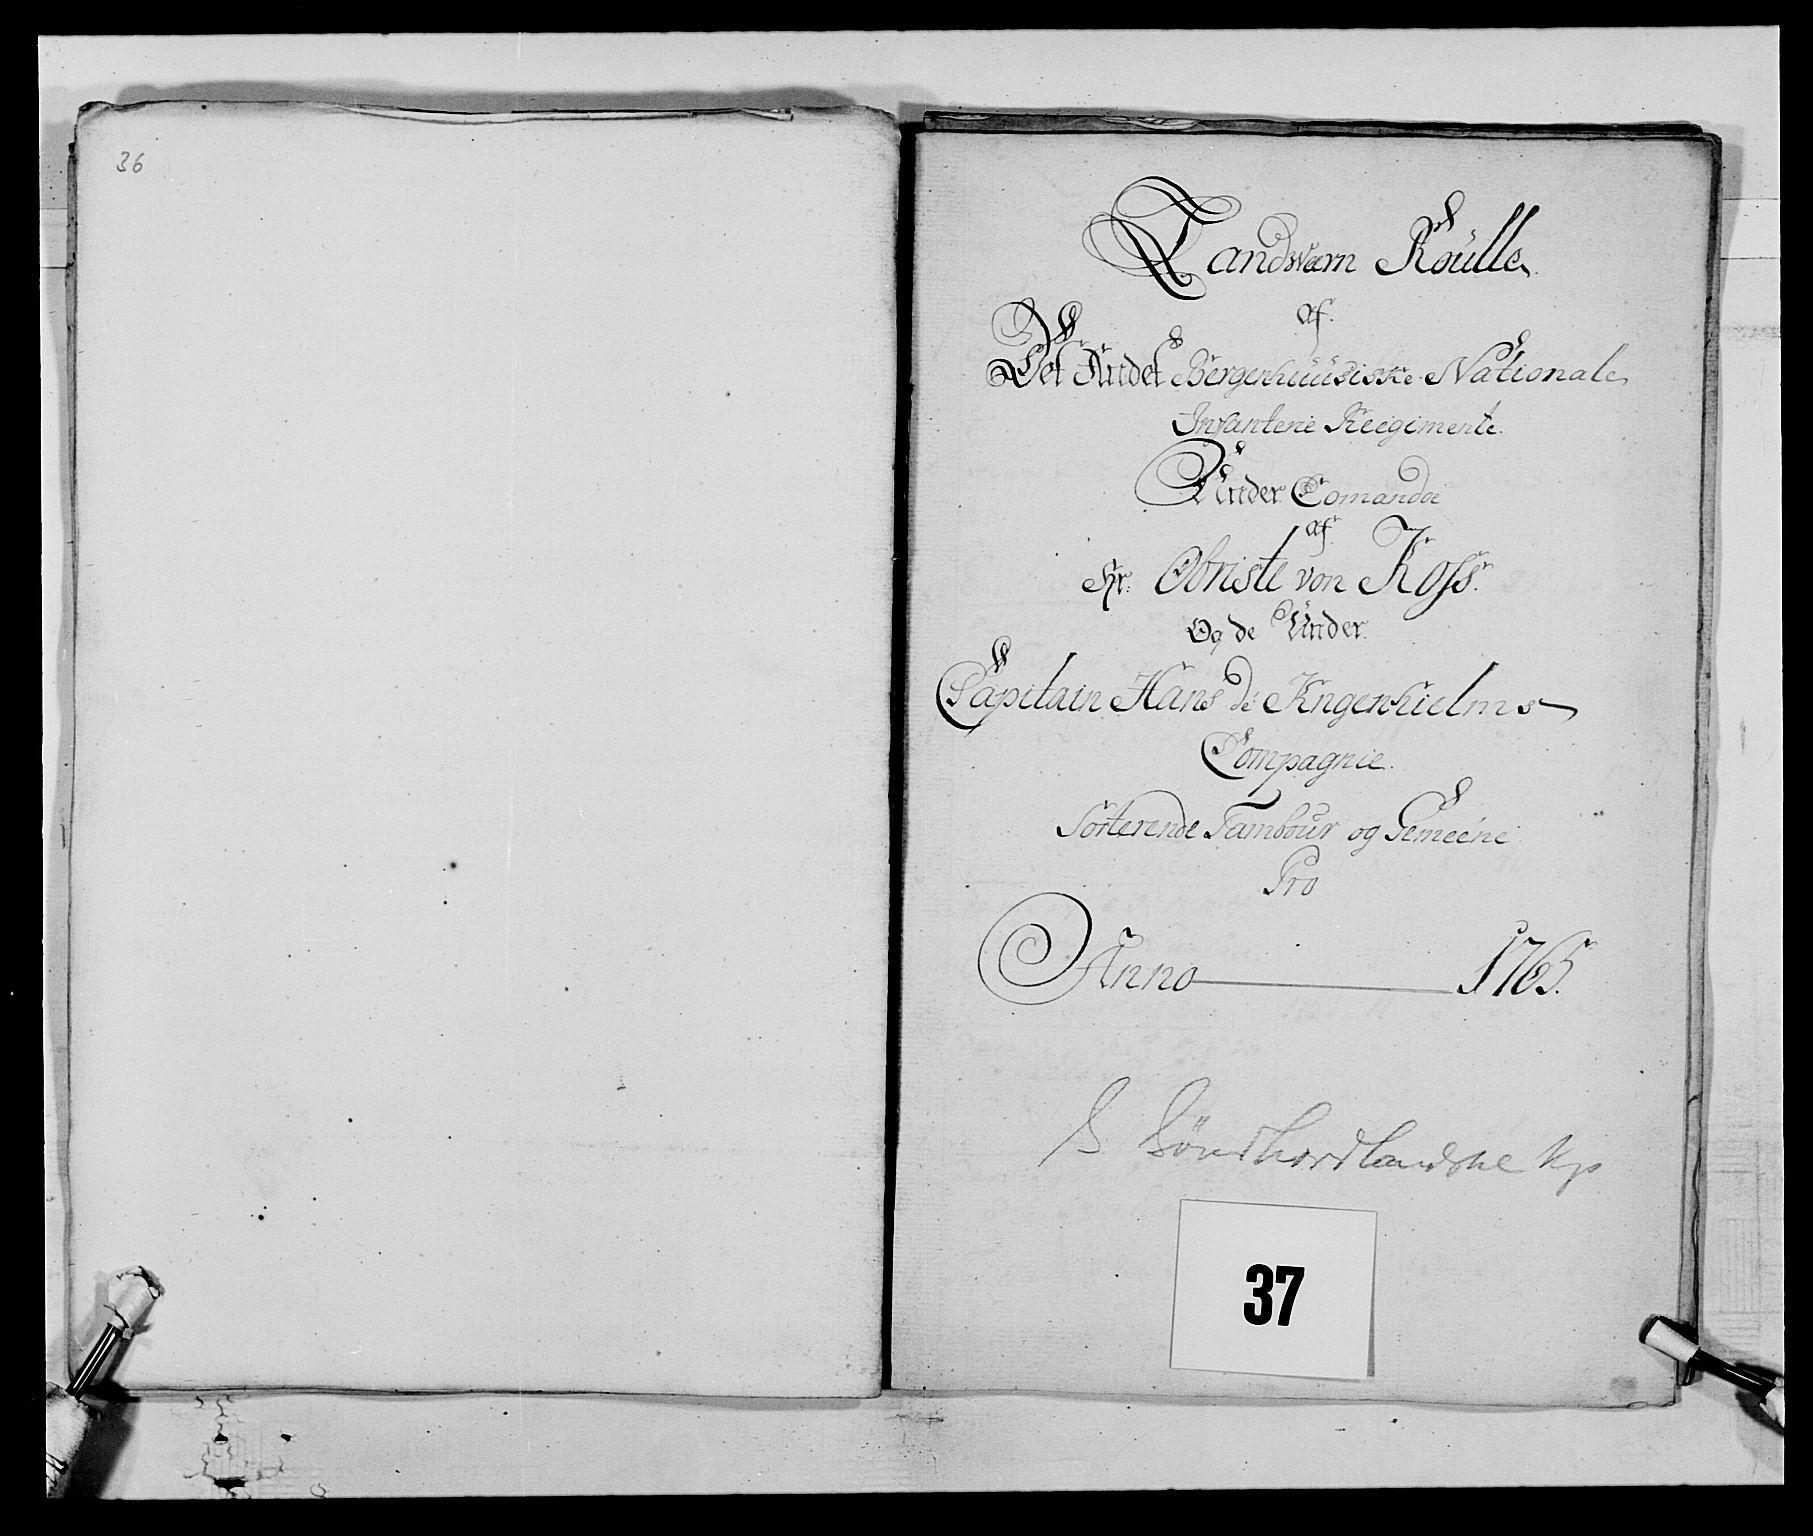 36
Landwærn Roulle
af
Det Andet Bergenhuusiske Nationale
Infanterie Regimente
Under Comando
af
Hr: Obriste von Koss.
Og de Under
Capitain Hans de Kngenhielms
Compagnie.
Sorterende Tambour og Gemeene
Pro
Anno 1765.
S Söndhordlandske Kp
37